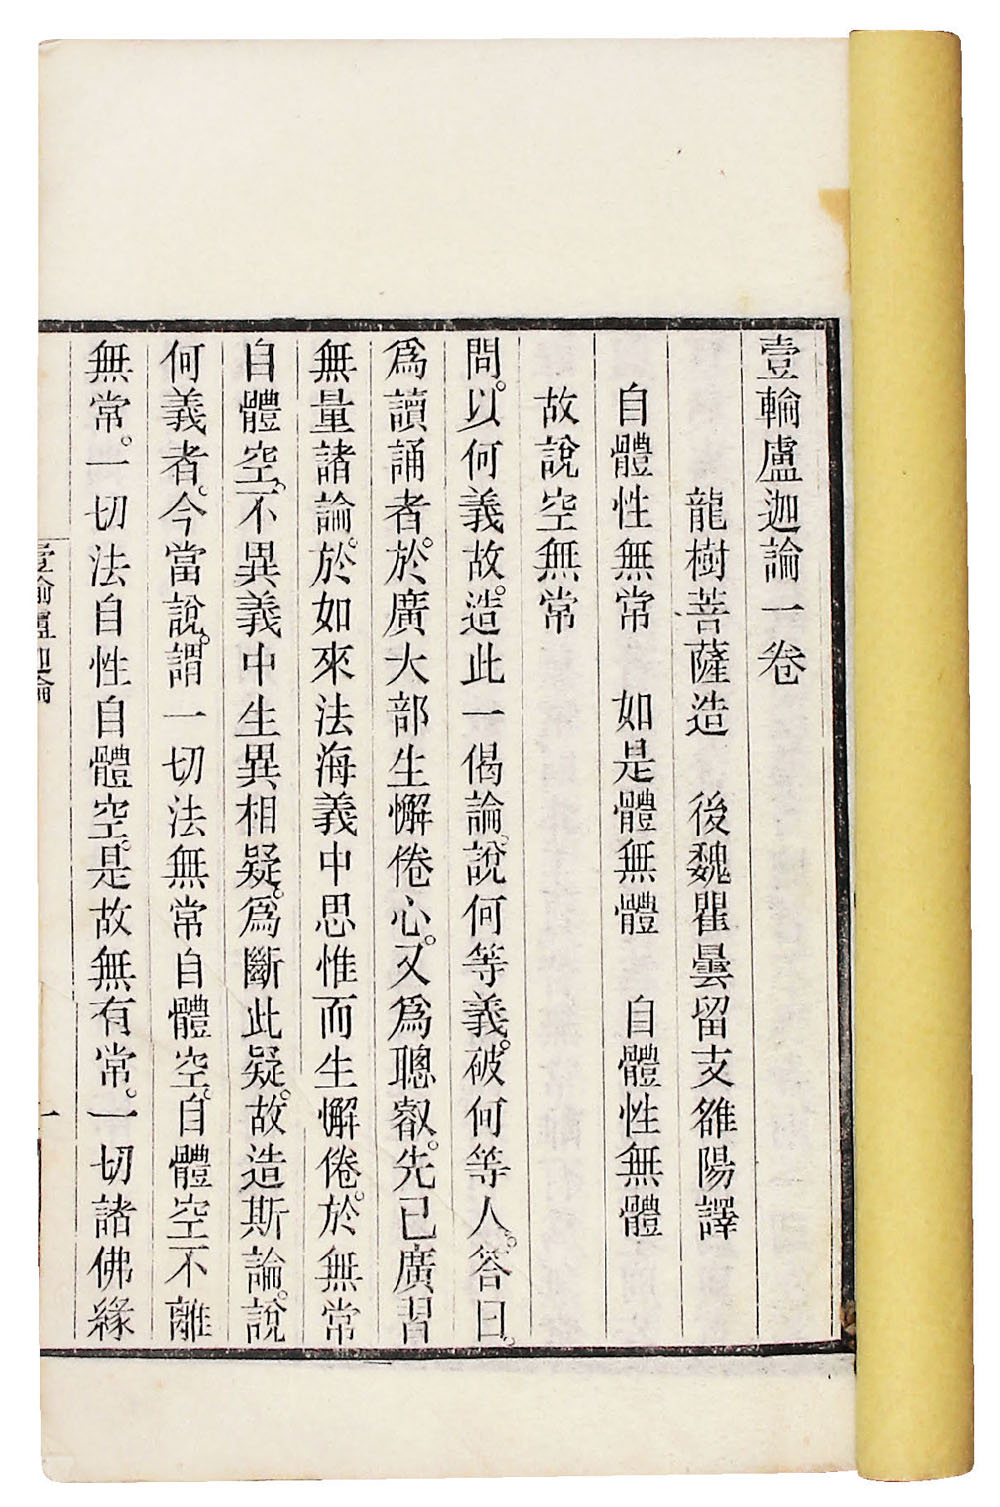 壹輸盧迦論一卷
龍樹菩薩造　後魏瞿曇留支雒陽譯
自體性無常　如是體無體　自體性無體
故說空無常
問。以何義故。造此一偈論。說何等義。破何等人。答曰。
爲讀誦者。於廣大部生懈倦心。又爲聰叡。先已廣習
無量諸論。於如來法海義中思惟而生懈倦。於無常
自體空。不異義中生異相疑。爲斷此疑。故造斯論。說
何義者。今當說。謂一切法無常自體空。自體空不離
無常。一切法自性自體空。是故無有常。一切諸佛緣
壹輸盧迦論
一